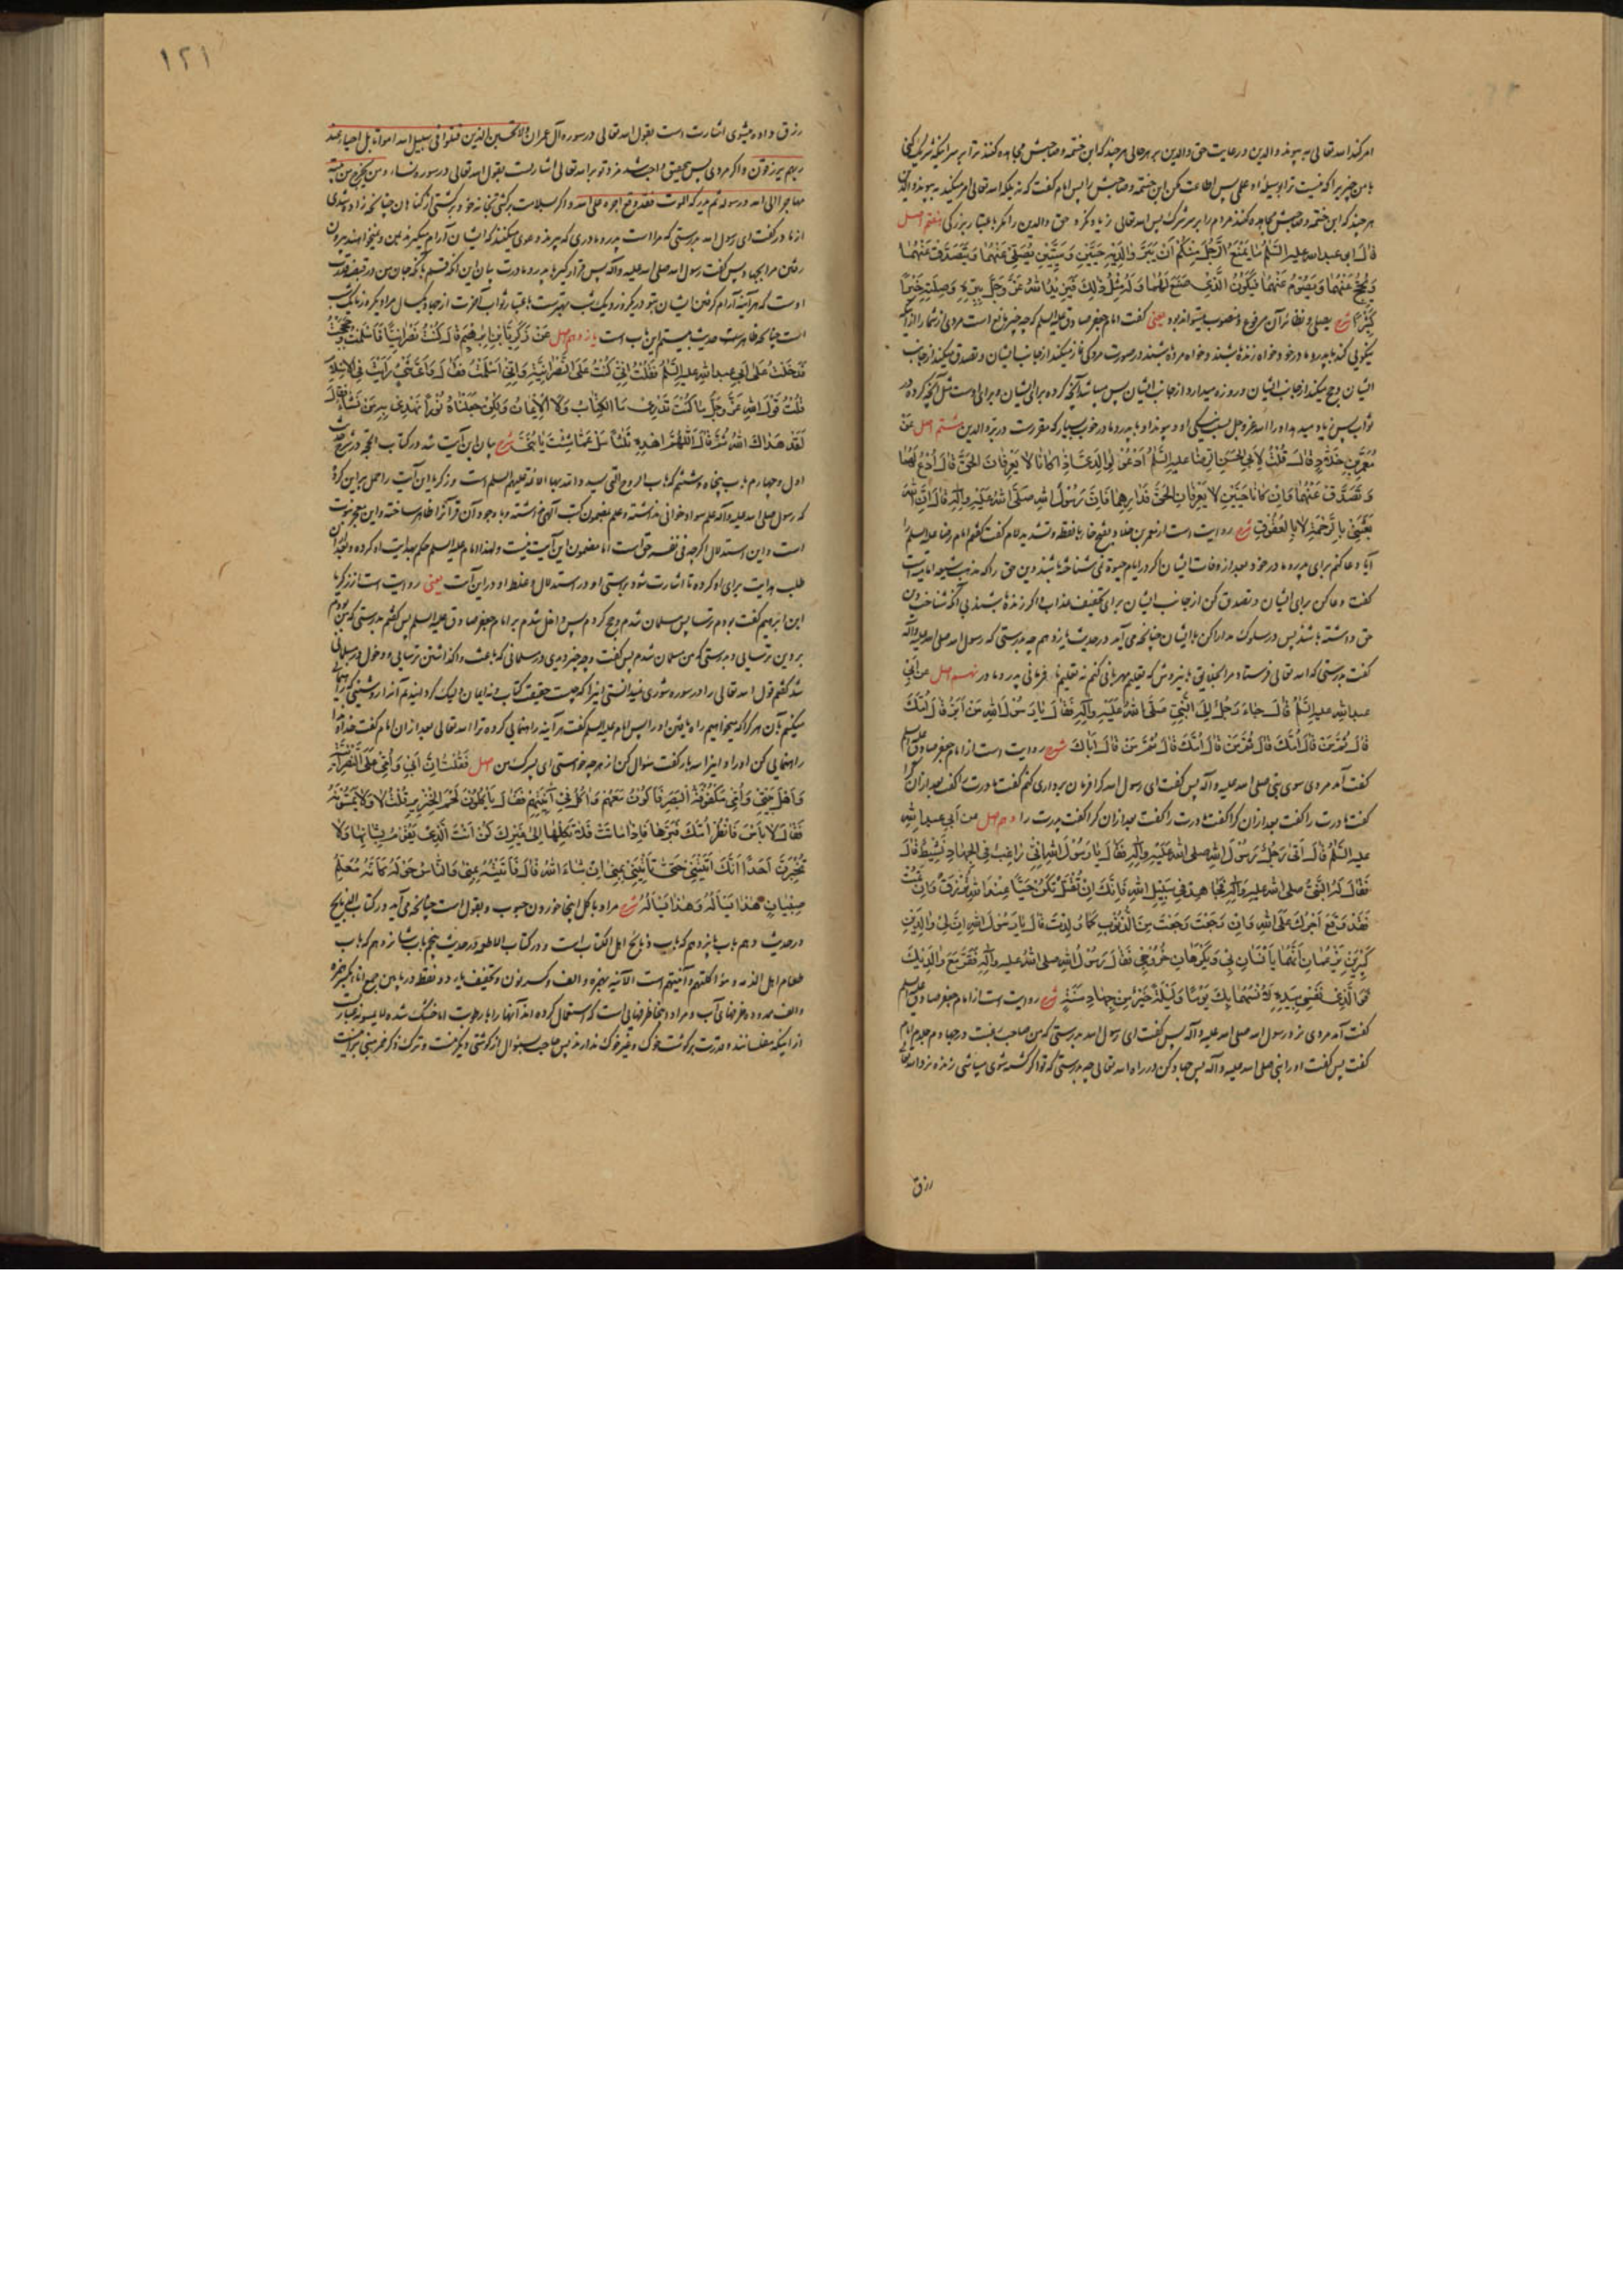 امر کند الله تعالی به پیوند والدین و رعایت حق والدین بر هر حالی هر چند که ابن خثمه و صاحبش مجاهده کنند ترا بر سر اینکه شریک کنی
با من چیزی را که نیست ترا بوسیله او علمی پس اطاعت مکن ابن خثمه و صاحبش را پس امام گفت که نه بلکه الله تعالی امر میکند به پیوند والدین
هر چند که ابن خثمه و صاحبش مجاهده کنند مردم را بر سر شرک پس الله تعالی زیاد نکرد حق والدین را مگر باعتبار بزرگی هفتم اصل
قال ابو عبد الله علیه السلم ما یمنع الرجل منکم ان یبر والدیه حیین و میتین یصلی عنهما و یتصدق عنهما
و یحج عنهما و یصوم عنهما فیکون الذی صنع لهما و له مثل ذلک فیزیده الله عز و جل ببره و صلته خیرا
کثیرا شرح یصلی و نظائر آن مرفوع و منصوب میتواند بود یعنی گفت امام جعفر صادق علیه السلم که چه چیز مانع است مردی از شما را از اینکه
نیکویی کند با پدر و مادر خود خواه زنده باشند و خواه مرده باشند در صورت مردگی نماز میکند از جانب ایشان و تصدق میکند از جانب
ایشان و حج میکند از جانب ایشان و روزه میدارد از جانب ایشان پس میباشد آنچه کرده برای ایشان و برای اوست مثل آنچه کرده در
ثواب پس زیاد میدهد او را الله عز و جل بسبب نیکی او و پیوند او با پدر و مادر خوب بسیار که مقررست در بر والدین هشتم اصل عن
معمر بن خلاد قال قلت لابی الحسن الرضا علیه السلم ادعو لوالدی اذا کانا لا یعرفان الحق قال ادع لهما
و تصدق عنهما و ان کانا حیین لا یعرفان الحق فدارهما فان رسول الله صلی الله علیه و آله قال ان الله
بعثنی بالرحمة لا بالعقوق شرح روایت است از معمر بن خلاد بفتح خا با نقطه و تشدید لام گفت گفتم امام رضا علیه السلم را
آیا دعا کنم برای پدر و مادر خود بعد از وفات ایشان اگر در ایام حیوة نمی شناخته باشند دین حق را که مذهب شیعه امامیه است
گفت دعا کن برای ایشان و تصدق کن از جانب ایشان برای تخفیف عذاب و اگر زنده باشند بی آنکه شناخت دین
حق داشته باشند پس در سلوک مدارا کن با ایشان چنانچه می آید در حدیث یازدهم چه بدرستی که رسول الله صلی الله علیه و آله
گفت بدرستی که الله تعالی فرستاد مرا بخلایق باین روش که تعلیم مهربانی کنم نه تعلیم نافرمانی پدر و مادر نهم اصل عن ابی
عبد الله علیه السلم قال جاء رجل الی النبی صلی الله علیه و آله فقال یا رسول الله من ابر قال امک
قال ثم من قال امک قال ثم من قال امک قال ثم من قال اباک شرح روایت است از امام جعفر صادق علیه السلم
گفت آمد مردی سوی نبی صلی الله علیه و آله پس گفت ای رسول الله کرا فرمان برداری کنم گفت مادرت را گفت بعد از آن کرا
گفت مادرت را گفت بعد از آن کرا گفت مادرت را گفت بعد از آن کرا گفت پدرت را دهم اصل عن ابی عبد الله
علیه السلم قال اتی رجل رسول الله صلی الله علیه و آله فقال یا رسول الله انی راغب فی الجهاد نشیط قال
فقال له النبی صلی الله علیه و آله فجاهد فی سبیل الله فانک ان تقتل تکن حیا عند الله ترزق و ان تمت
فقد وقع اجرک علی الله و ان رجعت رجعت من الذنوب کما ولدت قال یا رسول الله ان لی والدین
کبیرین یزعمان انهما یانسان بی و یکرهان خروجی فقال رسول الله صلی الله علیه و آله فقر مع والدیک
فو الذی نفسی بیده لانسهما بک یوما و لیلة خیر من جهاد سنة شرح روایت است از امام جعفر صادق علیه السلم
گفت آمد مردی نزد رسول الله صلی الله علیه و آله پس گفت ای رسول الله بدرستی که من صاحب رغبت در جهادم
گفت پس گفت او را نبی صلی الله علیه و آله پس جهاد کن در راه الله تعالی چه بدرستی که تو اگر کشته شوی میباشی زنده نزد الله تعالی
رزق
١٢١
رزق داده میشوی اشارت است بقول الله تعالی در سوره آل عمران ولا تحسبن الذین قتلوا فی سبیل الله امواتا بل احیاء عند
ربهم یرزقون و اگر مردی پس بتحقیق واجب شد مزد تو بر الله تعالی اشارتست بقول الله تعالی در سوره نساء و من یخرج من بیته
مهاجرا الی الله و رسوله ثم یدرکه الموت فقد وقع اجره علی الله و اگر سلامت برگشتی بخانه خود برگشتی از گناهان چنانچه زاده شدی
از مادر گفت ای رسول الله بدرستی که مرا است پدر و مادری که پیرند و دعوی میکنند که ایشان آرام میگیرند بمن و نمیخواهند بیرون
رفتن مرا بجهاد پس گفت رسول الله صلی الله علیه و آله پس قرار گیر با پدر و مادرت بیان این آنکه قسم بآنکه جان من در قبضه قدرت
اوست که هر آینه آرام گرفتن ایشان بتو در یک روز و یک شب بهتر است باعتبار ثواب آخرت از جهاد یکسال
است چنانچه ظاهر است حدیث بیستم این باب است یازدهم اصل عن زکریا بن ابراهیم قال کنت نصرانیا فاسلمت و حججت
فدخلت علی ابی عبد الله علیه السلم فقلت انی کنت علی النصرانیة و انی اسلمت فقال و ای شیء رایت فی الاسلام
قلت قول الله عز و جل ما کنت تدری ما الکتاب ولا الایمان ولکن جعلناه نورا نهدی به من نشاء فقال
لقد هداک الله ثم قال اللهم اهده ثلثا سل عما شئت یا بنی شرح بیان این آیت شد در کتاب الحجة در شرح حدیث
اول و چهارم باب پنجاه و ششم که باب الروح التی یسدد الله بها الائمة علیهم السلم است و زکریا این آیت را حمل بر این کرده
که رسول صلی الله علیه و آله علم سواد خوانی نداشته و علم بمضمون کتب الهی نداشته و با وجود آن قرآن را ظاهر ساخته و این معجز نبوت
است و این استدلال اگر چه فی نفسه حق است اما مضمون این آیت نیست و لهذا امام علیه السلم حکم بهدایت او کرده و بعد از آن
طلب هدایت برای او کرده تا اشارت شود براستی او در استدلال و غلط او در این آیت یعنی روایت است از زکریا
ابن ابراهیم گفت بودم ترسا پس مسلمان شدم و حج کردم پس داخل شدم بر امام جعفر صادق علیه السلم پس گفتم بدرستی که من بودم
بر دین ترسایی و بدرستی که من مسلمان شدم پس گفت و چه چیز دیدی در مسلمانی که باعث واگذاشتن ترسایی و دخول در مسلمانی
شد گفتم قول الله تعالی را در سوره شوری نمیدانستی اینرا که چیست حقیقت کتاب و نه ایمان و لیک گردانیدیم آنرا روشنیی که راهنمایی
میکنیم بآن هر کرا که میخواهیم راه یافتن او را پس امام علیه السلم گفت هر آینه راهنمایی کرده ترا الله تعالی بعد از آن امام گفت خداوندا
راهنمایی کن او را و اینرا سه بار گفت سؤال کن از هر چه خواستی ای پسرک من اصل فقلت ان ابی و امی علی النصرانیة
و اهل بیتی و امی مکفوفة البصر فاکون معهم و آکل فی آنیتهم فقال یاکلون لحم الخنزیر قلت لا ولا یمسونه
فقال لا باس فانظر امک فبرها فاذا ماتت فلا تکلها الی غیرک کن انت الذی یقوم بشانها ولا
تخبرن احدا انک اتیتنی حتی تاتینی بمنی ان شاء الله قال فاتیته بمنی و الناس حوله کانه معلم
صبیان هذا یساله و هذا یساله شرح مراد باکل اینجا خوردن حبوب و بقول است چنانچه می آید در کتاب الذبایح
در حدیث دهم باب پانزدهم که باب ذبایح اهل الکتاب است و در کتاب الاطعمة در حدیث پنجم باب شانزدهم که باب
طعام اهل الذمة و مؤاکلتهم و آنیتهم است الآنیه بهمزه و الف و کسر نون و تخفیف یاء دو نقطه در پایین جمع اناء بکسر همزه
و الف ممدوده ظرفهای آب و مراد اینجا ظرفهایی است که استعمال کرده اند آنها را با رطوبت اما خشک شده لا یمسونه عبارت
از اینکه مفلسانند و قدرت بر گوشت خوک و غیر خوک ندارند پس صاحب سؤال از گوشتی دیگر نیست و ترک ذکر خمر مبنی بر اینست